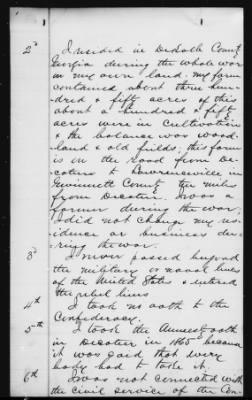 2d I resided in DeKalb County
Georgia during the whole war
on my own land, my farm
contained about three hun-
dred & fifty acres of this
about a hundred & fifty
acres were in cultivation
& the balance was wood-
land & old fields; this farm
is on the road from De-
catur to Lawrenceville in
Gwinnett County ten miles
from Decatur. I was a
farmer during the war.
I did not change my res-
idence or business du-
ring the war.
3d I never passed beyond
the military or naval lines
of the United States & entered
the rebel lines
4th I took no oath to the
Confederacy.
5th I took the Amnesty oath
in Decatur in 1865 because
it was said that every
body had to take it.
6th I was not connected with
the civil service of the Con